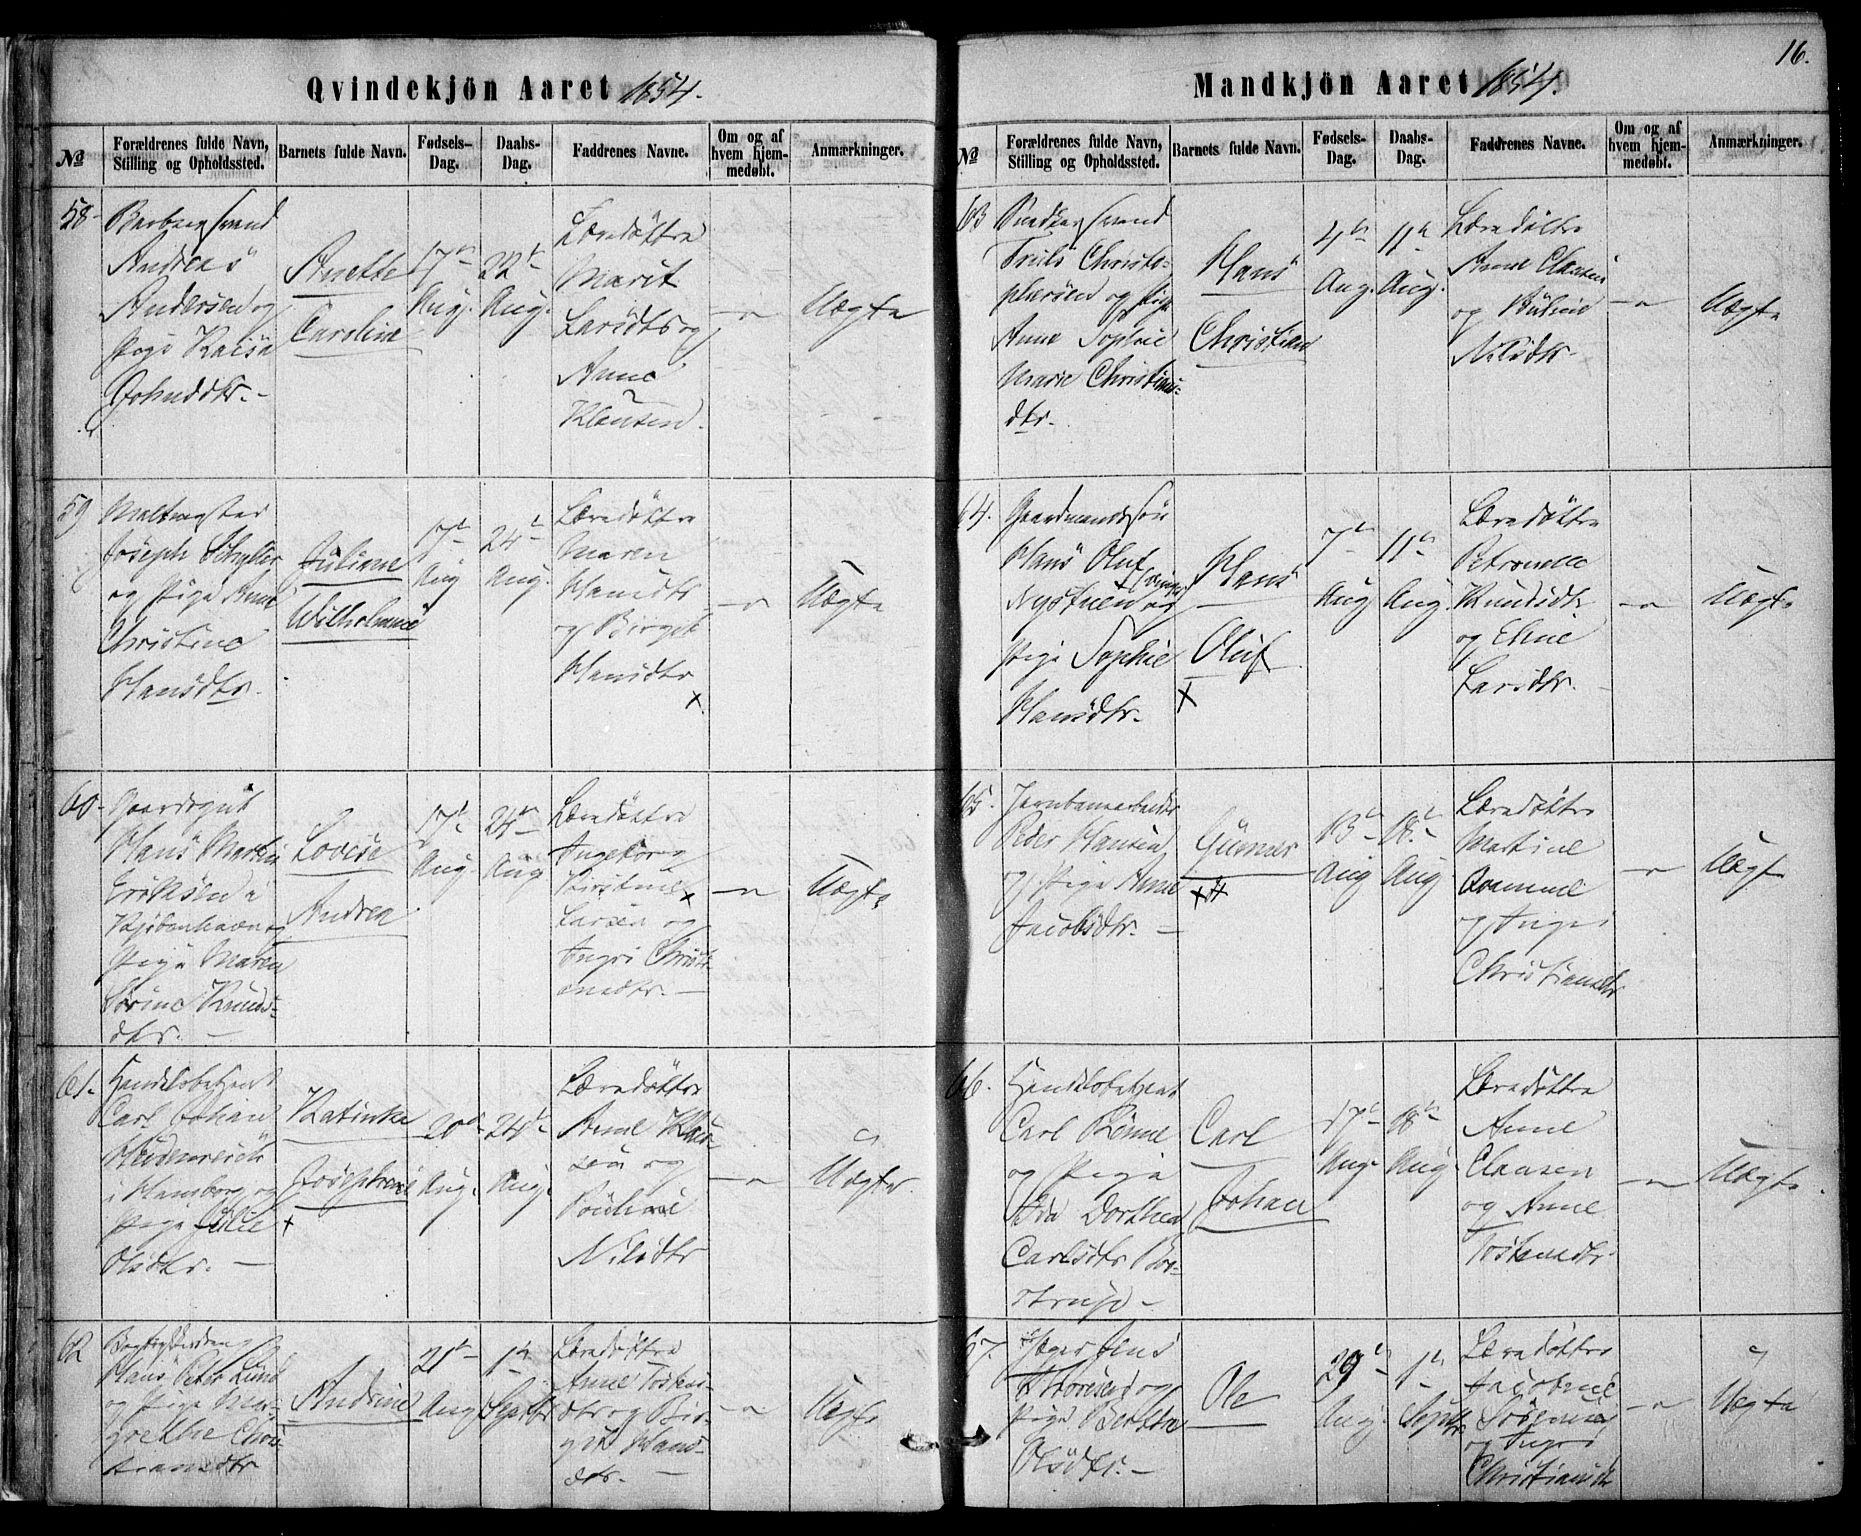 16.
Qvindekjön Aaret 1854.
No
Forældrenes fulde Navn, Stilling og Opholdssted.
Barnets fulde Navn.
Fødsels-Dag.
Daabs-Dag.
Faddrenes Navne.
Om og af hvem hjem-medøbt.
Anmærkninger.
58.
Andreas
Andersen og
Pige Kaisa
Johnsdtr. -
Anette
Caroline
17de
Aug.
22de
Aug.
Læredøttre
Marit
Larsdtr og
Anne
Klausen.
Uægte
59
Joseph Schyller
og Pige Anne
Christine
Hansdtr.
Juliane
Wilhelmine
17de
Aug
24de
Aug.
Læredøttre
Maren
Hansdtr
og Birget
Hansdtr
x
Uægte
60.
Hans Martin
Eriksen i
Kjøbenhavn og
Pige Maren
Sørine Knuds-
dtr. -
Lovise
Andrea
17de
Aug.
24de
Aug
Læredøttre
Ingeborg
Kirstine x
Larsen og
Ingri Christi-
ansdtr. -
Uægte
61.
Handelsbetjent
Carl Johan
Heidenreich
i Hamborg og
Pige Julie
Olsdtr. -
Katinka
Josephine
x
20de
Aug.
24de
Aug.
Læredøttre
Anne Klau-
sen og
Pouline
Nilsdtr
Uægte
62
Hans Peter Lund
og Pige Mar-
grethe Chris-
tiansdtr
Andrine
21de
Aug
1ste
Septbr
Læredøttre
Anne Tosten-
dtr og Bir-
git Hans-
dtr. -
Uægte
Mandkjön Aaret 1854.
No
Forældrenes fulde Navn, Stilling og Opholdssted.
Barnets fulde Navn.
Fødsels-Dag.
Daabs-Dag.
Faddrenes Navne.
Om og af hvem hjem-medøbt.
Anmærkninger.
63
Snedkersvend
Truls Christo-
phersen og Pige
Anne Sophie
Marie Christians-
dtr.
Hans
Christian
4de
Aug.
11te
Aug.
Læredøttre
Anne Clausen
og
Nilsdtr.
Uægte
64.
Gaardmandssøn
Hans Oluf
og
Pige Sophie
Hansdtr.
Hans
Oluf
x
7de
Aug
11te
Aug
Læredøttre
Petronelle
Knudsdtr
og Eline
Larsdtr.
Uægte
65.
Jernbanearbeider
Peder Hansen
og Pige Anne
Jacobsdtr. -
Gunder
13de
Aug
18de
Aug
Læredøttre
Martine
og Inger
Christiansdtr
Uægte
66.
Handelsbetjent
Carl Rønne
og Pige
Ida Dorthea
Carlsdtr
Carl
Johan
17de
Aug.
18de
Aug.
Læredøttre
Anne
Clausen
og Anne
Tostensdtr.
Uægte
67.
Jens
Thoresen og
Pige Berthe
Olsdtr. -
Ole
29de
Aug.
1ste
Septbr
Læredøttre
Jacobine
og Ingri
Christiansdtr
Uægte